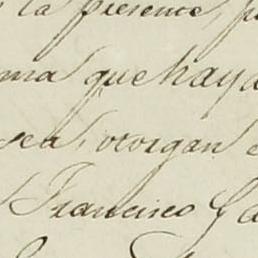 la presente, p
ma que haya
sea, otorgan e
Francisco Ga